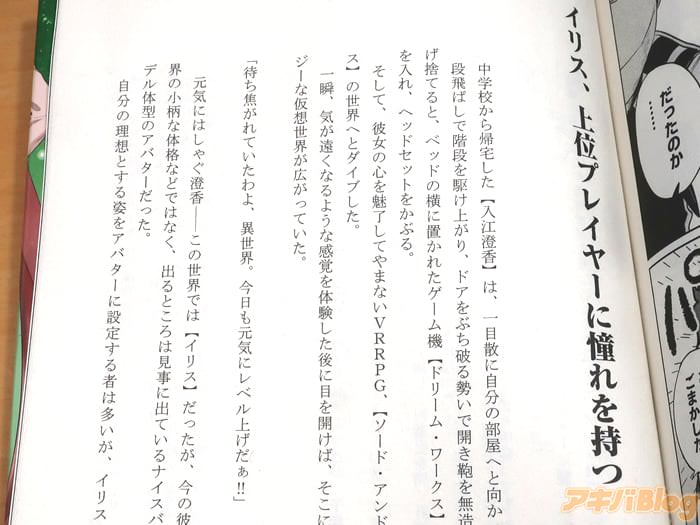 だったのか
……
ごまかした
イリス、上位プレイヤーに憧れを持つ
中学校から帰宅した【入江澄香】は、一目散に自分の部屋へと向か
段飛ばしで階段を駆け上がり、ドアをぶち破る勢いで開き鞄を無造
げ捨てると、ベッドの横に置かれたゲーム機【ドリーム・ワークス】
を入れ、ヘッドセットをかぶる。
そして、彼女の心を魅了してやまないVRRPG、【ソード・アンド
ス】の世界へとダイブした。
一瞬、気が遠くなるような感覚を体験した後に目を開けば、そこに
ジーな仮想世界が広がっていた。
「待ち焦がれていたわよ、異世界。今日も元気にレベル上げだぁ!!」
元気にはしゃぐ澄香――この世界では【イリス】だったが、今の彼
界の小柄な体格などではなく、出るところは見事に出ているナイスバ
デル体型のアバターだった。
自分の理想とする姿をアバターに設定する者は多いが、イリス
アキバBlog